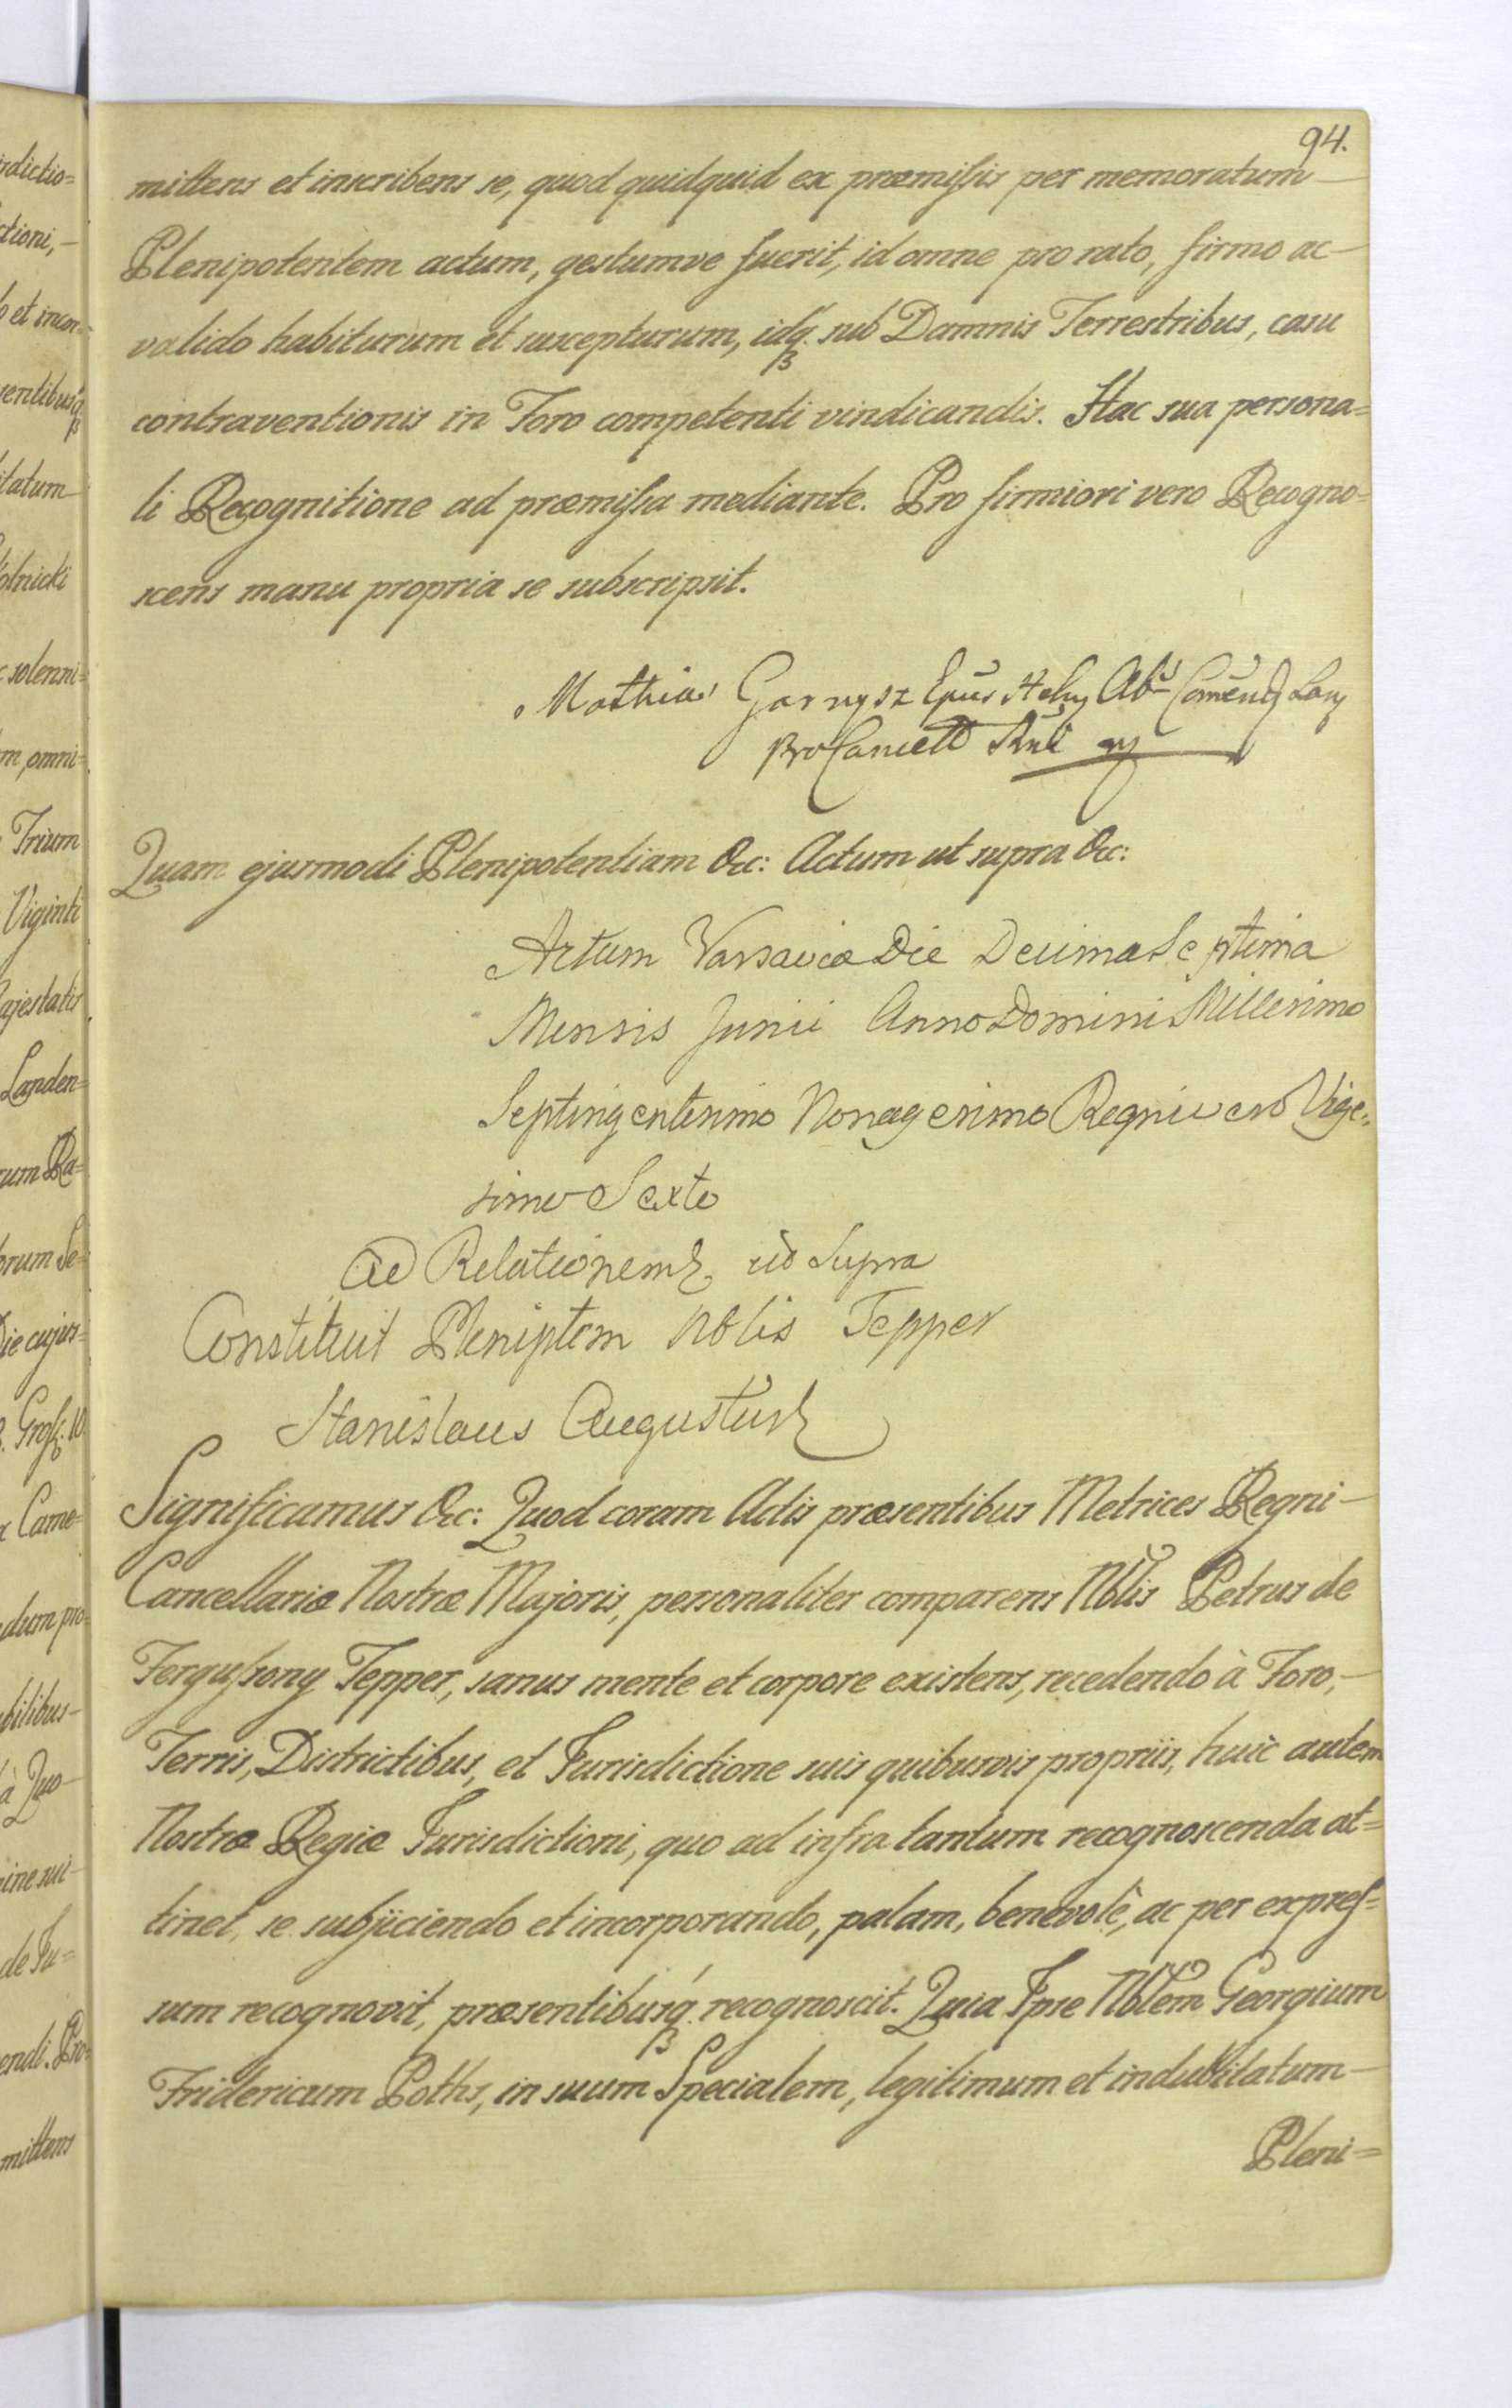 94.
mittens et inscribens se, quod quidquid ex præmissis per memoratum
Plenipotentem actum, gestumve fuerit, id omne pro rato, firmo ac
valido habiturum et suscepturum, idq. sub Damnis Terrestribus, casu
contraventionis in Foro competenti vindicandis. Hac sua persona=
li Recognitione ad præmissa mediante. Pro firmiori vero Recogno=
scens manu propria se subscripsit.
Mathias Garnysz Epus Abs
ProCancell
Quam ejusmodi Plenipotentiam &c: Actum ut supra &c:
Actum Varsaviæ Die Decima Septima
Mensis Junii Anno Domini Millesimo
Septingentesimo Nonagesimo Regni vero Vige=
simo Sexto
Ad Relationem ut Supra
Constituit Pleniptem Nblis Tepper
Stanislaus Augustus
Significamus &c: Quod coram Actis præsentibus Metrices Regni
Cancellariæ Nostræ Majoris, personaliter comparens Nblis Petrus de
Fergussony Tepper, sanus mente et corpore existens, recedendo à Foro,
Terris, Districtibus, et Jurisdictione suis quibusvis propriis, huic autem
Nostræ Regiæ Jurisdictioni, quo ad infra tantum recognoscenda at=
tinet, se subjiciendo et incorporando, palam, benevolè, ac per expres=
sum recognovit, præsentibusq. recognoscit. Quia Ipse Nblem Georgium
Fridericum Poths, in suum Specialem, legitimum et indubitatum
Pleni=
rdictio=
ctioni,
o et incor=
sentibusq
itatum
olnicki
c solenni=
m omni=
Trium
Viginti
ajestatis
Landen=
rum Ra=
orum Se=
Die cujus=
x Came=
dum pro=
bilibus
à Quo
ine sui
de Ju=
endi. Pro=
mittens